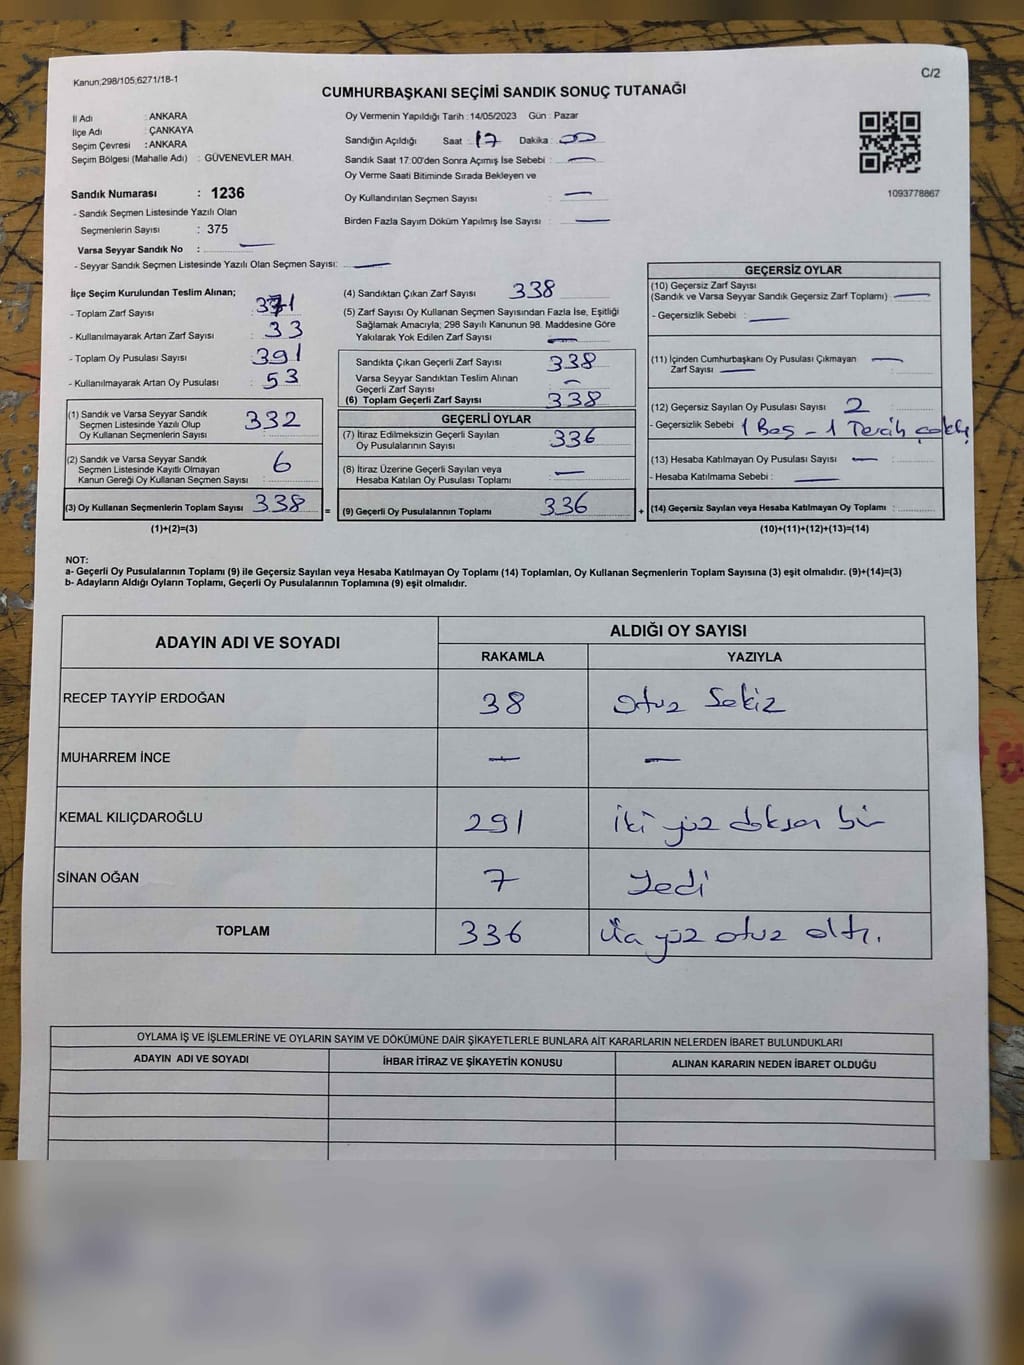 Kanun,298/105,6271/18-1
C/2
CUMHURBAŞKANI SEÇİMİ SANDIK SONUÇ TUTANAĞI
İl Adı : ANKARA
İlçe Adı : ÇANKAYA
Seçim Çevresi : ANKARA
Seçim Bölgesi (Mahalle Adı) : GÜVENEVLER MAH.
Sandık Numarası : 1236
- Sandık Seçmen Listesinde Yazılı Olan
Seçmenlerin Sayısı : 375
Varsa Seyyar Sandık No : —
- Seyyar Sandık Seçmen Listesinde Yazılı Olan Seçmen Sayısı: —
Oy Vermenin Yapıldığı Tarih : 14/05/2023 Gün : Pazar
Sandığın Açıldığı Saat : 17 Dakika : 00
Sandık Saat 17:00'den Sonra Açılmış İse Sebebi : —
Oy Verme Saati Bitiminde Sırada Bekleyen ve
Oy Kullandırılan Seçmen Sayısı : —
Birden Fazla Sayım Döküm Yapılmış İse Sayısı : —
1093778867
İlçe Seçim Kurulundan Teslim Alınan;
- Toplam Zarf Sayısı : 371
- Kullanılmayarak Artan Zarf Sayısı : 33
- Toplam Oy Pusulası Sayısı : 391
- Kullanılmayarak Artan Oy Pusulası : 53
(1) Sandık ve Varsa Seyyar Sandık
Seçmen Listesinde Yazılı Olup
Oy Kullanan Seçmenlerin Sayısı : 332
(2) Sandık ve Varsa Seyyar Sandık
Seçmen Listesinde Kayıtlı Olmayan
Kanun Gereği Oy Kullanan Seçmen Sayısı : 6
(3) Oy Kullanan Seçmenlerin Toplam Sayısı : 338
(1)+(2)=(3)
(4) Sandıktan Çıkan Zarf Sayısı 338
(5) Zarf Sayısı Oy Kullanan Seçmen Sayısından Fazla İse, Eşitliği
Sağlamak Amacıyla; 298 Sayılı Kanunun 98. Maddesine Göre
Yakılarak Yok Edilen Zarf Sayısı : —
Sandıkta Çıkan Geçerli Zarf Sayısı : 338
Varsa Seyyar Sandıktan Teslim Alınan
Geçerli Zarf Sayısı : —
(6) Toplam Geçerli Zarf Sayısı : 338
GEÇERLİ OYLAR
(7) İtiraz Edilmeksizin Geçerli Sayılan
Oy Pusulalarının Sayısı : 336
(8) İtiraz Üzerine Geçerli Sayılan veya
Hesaba Katılan Oy Pusulası Toplamı : —
= (9) Geçerli Oy Pusulalarının Toplamı : 336 +
GEÇERSİZ OYLAR
(10) Geçersiz Zarf Sayısı
(Sandık ve Varsa Seyyar Sandık Geçersiz Zarf Toplamı) : —
- Geçersizlik Sebebi : —
(11) İçinden Cumhurbaşkanı Oy Pusulası Çıkmayan
Zarf Sayısı — : —
(12) Geçersiz Sayılan Oy Pusulası Sayısı : 2
- Geçersizlik Sebebi : 1 Boş - 1 Tercih
(13) Hesaba Katılmayan Oy Pusulası Sayısı — :
- Hesaba Katılmama Sebebi : —
(14) Geçersiz Sayılan veya Hesaba Katılmayan Oy Toplamı :
(10)+(11)+(12)+(13)=(14)
NOT:
a- Geçerli Oy Pusulalarının Toplamı (9) ile Geçersiz Sayılan veya Hesaba Katılmayan Oy Toplamı (14) Toplamları, Oy Kullanan Seçmenlerin Toplam Sayısına (3) eşit olmalıdır. (9)+(14)=(3)
b- Adayların Aldığı Oyların Toplamı, Geçerli Oy Pusulalarının Toplamına (9) eşit olmalıdır.
ADAYIN ADI VE SOYADI
ALDIĞI OY SAYISI
RAKAMLA YAZIYLA
RECEP TAYYİP ERDOĞAN 38 otuz Sekiz
MUHARREM İNCE — —
KEMAL KILIÇDAROĞLU 291 iki yüz doksan bir
SİNAN OĞAN 7 Yedi
TOPLAM 336 Üç yüz otuz altı.
OYLAMA İŞ VE İŞLEMLERİNE VE OYLARIN SAYIM VE DÖKÜMÜNE DAİR ŞİKAYETLERLE BUNLARA AİT KARARLARIN NELERDEN İBARET BULUNDUKLARI
ADAYIN ADI VE SOYADI İHBAR İTİRAZ VE ŞİKAYETİN KONUSU ALINAN KARARIN NEDEN İBARET OLDUĞU